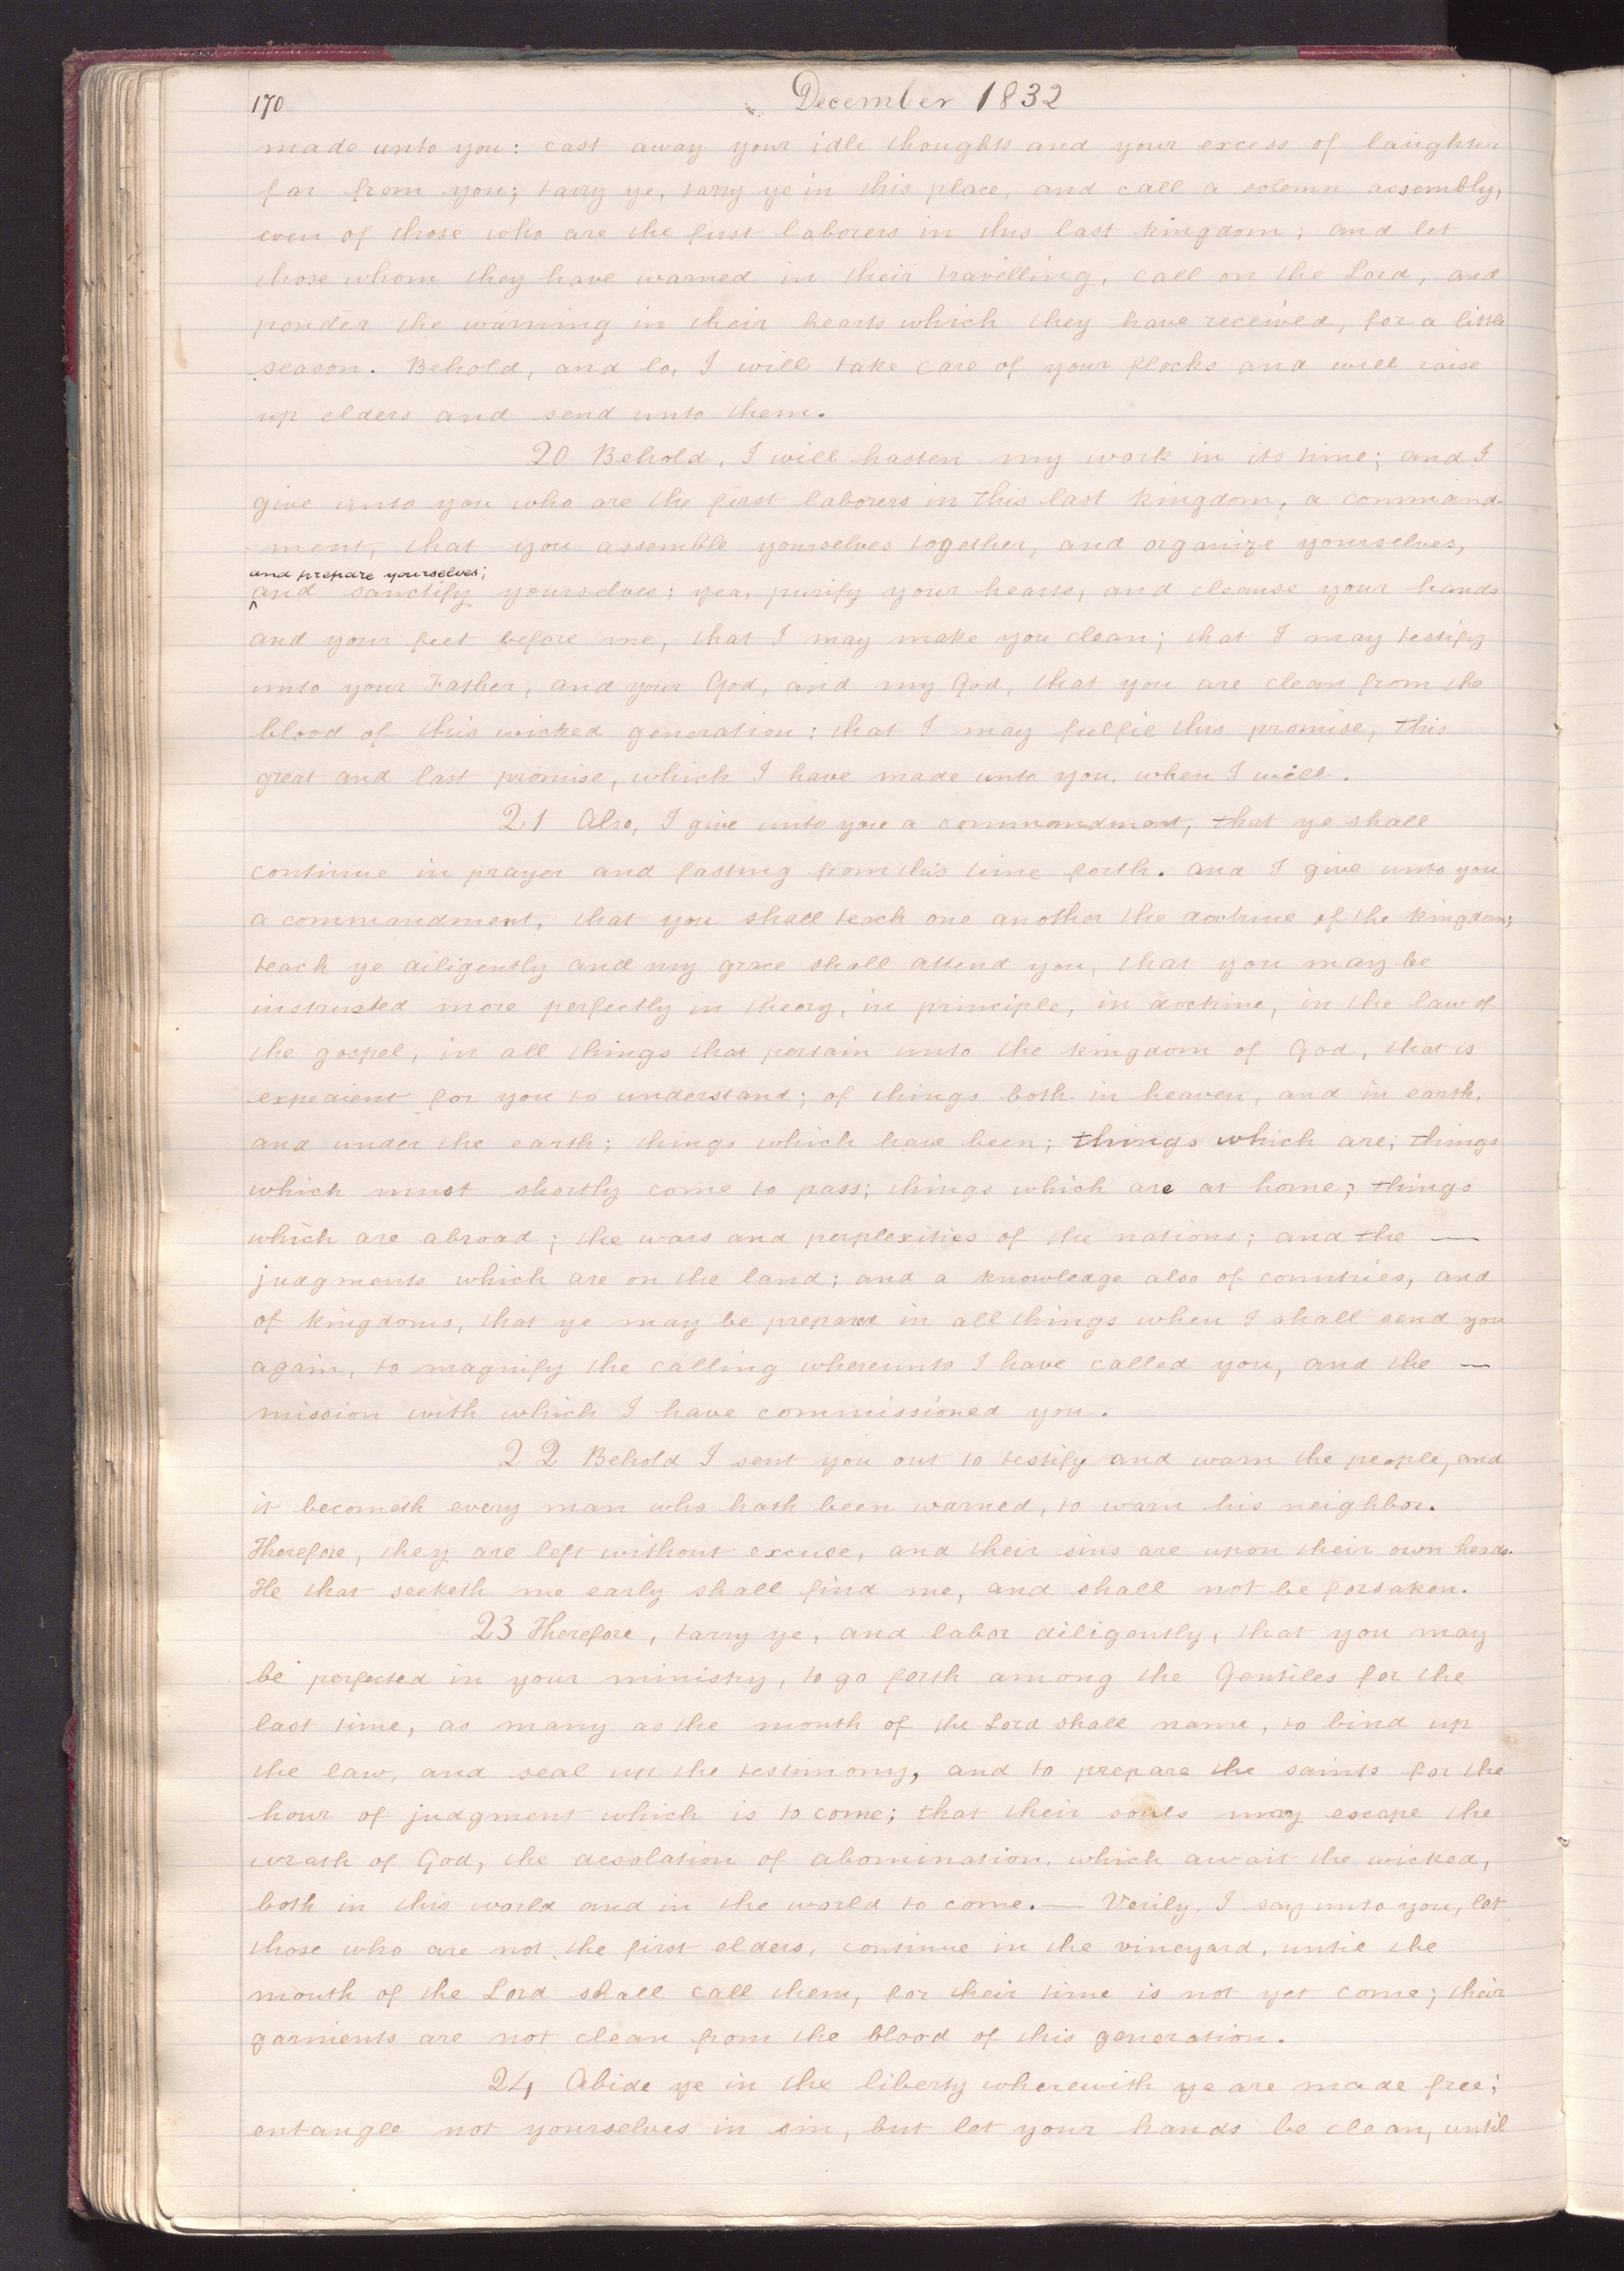 170
December 1832
made unto you: cast away your idle thoughts and your excess of laughter
far from you; tarry ye, tarry ye in this place, and call a solemn assembly,
even of those who are the first laborers in this last kingdom; and let
those whom they have warned in their travelling, call on the Lord, and
ponder the warning in their hearts which they have received, for a little
season. Behold, and lo, I will take care of your flocks and will raise
up elders and send unto them.
20 Behold, I will hasten my work in its time; and I
give unto you who are the first laborers in this last kingdom, a command-
-ment, that you assemble yourselves together, and organize yourselves,
and prepare yourselves;
^and sanctify yourselves; yea, purify your hearts, and cleanse your hands
and your feet before me, that I may make you clean; that I may testify
unto your Father, and your God, and my God, that you are clean from the
blood of this wicked generation: that I may fulfil this promise, this
great and last promise, which I have made unto you, when I will.
21 Also, I give unto you a commandment, that ye shall
continue in prayer and fasting from this time forth. And I give unto you
a commandment, that you shall teach one another the doctrine of the kingdom;
teach ye diligently and my grace shall attend you, that you may be
instructed more perfectly in theory, in principle, in doctrine, in the law of
the gospel, in all things that pertain unto the kingdom of God, that is
expedient for you to understand; of things both in heaven, and in earth,
and under the earth; things which have been; things which are; things
which must shortly come to pass; things which are at home; things
which are abroad; the wars and perplexities of the nations; and the —
judgments which are on the land; and a knowledge also of countries, and
of kingdoms, that ye may be prepared in all things when I shall send you
again, to magnify the calling whereunto I have called you, and the —
mission with which I have commissioned you.
22 Behold I sent you out to testify and warn the people, and
it becometh every man who hath been warned, to warn his neighbor.
Therefore, they are left without excuse, and their sins are upon their own heads.
He that seeketh me early shall find me, and shall not be forsaken.
23 Therefore, tarry ye, and labor diligently, that you may
be perfected in your ministry, to go forth among the Gentiles for the
last time, as many as the mouth of the Lord shall name, to bind up
the law, and seal up the testimony, and to prepare the saints for the
hour of judgment which is to come; that their souls may escape the
wrath of God, the desolation of abomination, which await the wicked,
both in this world and in the world to come. — Verily, I say unto you, let
those who are not the first elders, continue in the vineyard, until the
mouth of the Lord shall call them, for their time is not yet come; their
garments are not clean from the blood of this generation.
24 Abide ye in the liberty wherewith ye are made free;
entangle not yourselves in sin, but let your hands be clean, until